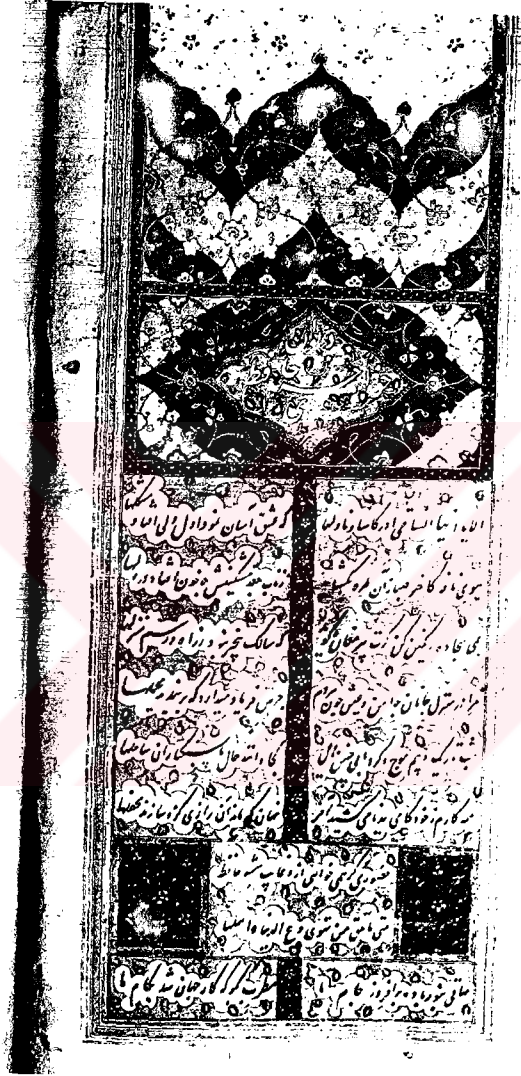 الا یا ایها الساقی ادر کاسا و ناولها که عشق آسان نمود اول ولی افتاد مشکلها
ببوی نافه کاخر صبا زان طره بگشاید ز تاب جعد مشکینش چه خون افتاد در دلها
بمی سجاده رنگین کن گرت پیر مغان گوید که سالک بیخبر نبود ز راه و رسم منزلها
مرا در منزل جانان چه امن و عیش چون هر دم جرس فریاد میدارد که بربندید محملها
شب تاریک و بیم موج و گردابی چنین هایل کجا دانند حال ما سبکباران ساحلها
همه کارم ز خود کامی ببدنامی کشید آخر نهان کی ماند آن رازی کزو سازند محفلها
حضوری گر همی خواهی ازو غایب مشو حافظ
متی ما تلق من تهوی دع الدنیا و اهملها
ساقی بنور باده برافروز جام ما مطرب بگو که کار جهان شد بکام ما